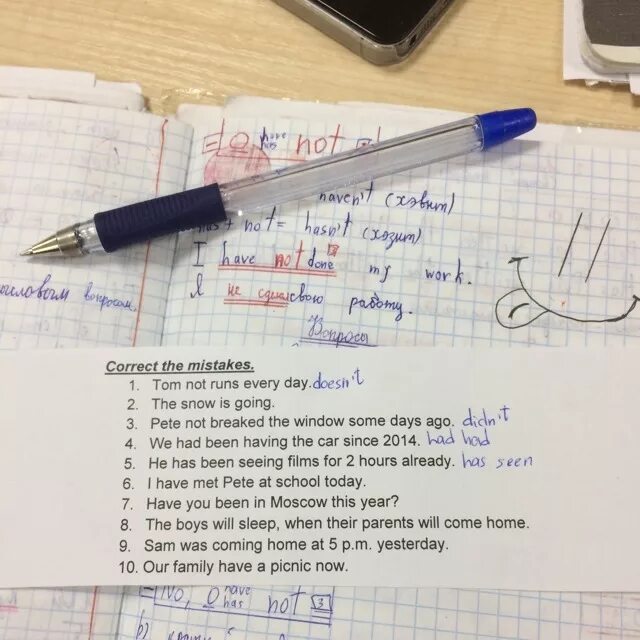 have
has not
haven't (хэвнт)
not = hasn't (хэзнт)
I have not done my work.
Я не сделал свою работу.
вопросам
Вопросы
Correct the mistakes.
1. Tom not runs every day. doesn't
2. The snow is going.
3. Pete not breaked the window some days ago. didn't
4. We had been having the car since 2014. had had
5. He has been seeing films for 2 hours already. has seen
6. I have met Pete at school today.
7. Have you been in Moscow this year?
8. The boys will sleep, when their parents will come home.
9. Sam was coming home at 5 p.m. yesterday.
10. Our family have a picnic now.
No, have
has not 3